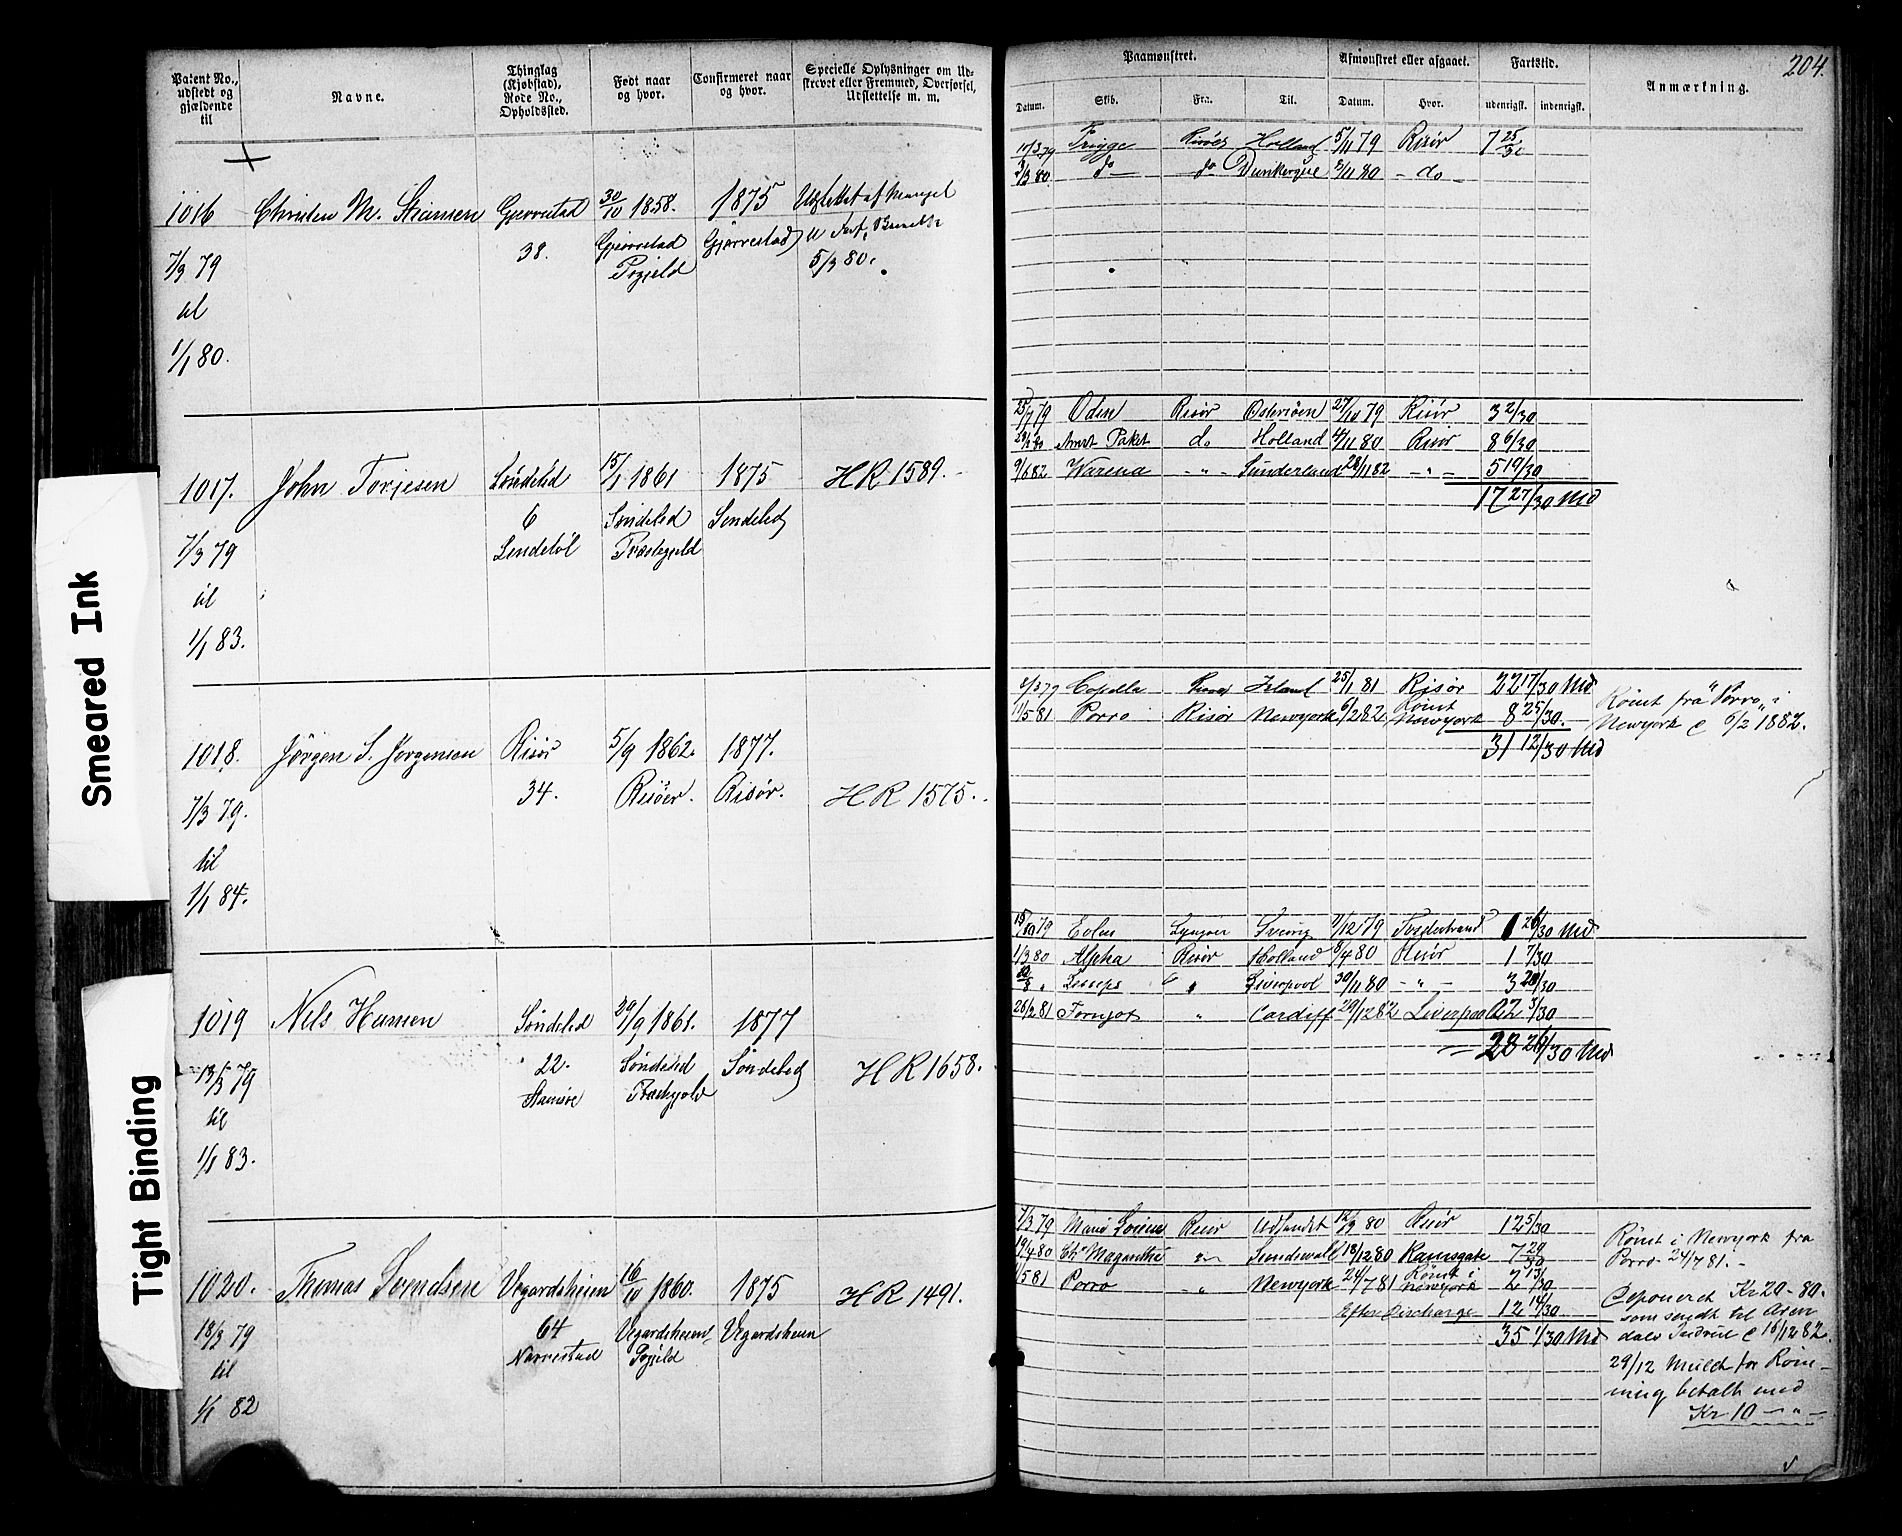 204.
Patent No., udstedt og gjældende til
Navne.
Thinglag (Kjøbstad), Rode No., Opholdssted.
Født naar og hvor.
Confirmeret naar og hvor.
Specielle Oplysninger om Udskrevet eller Fremmed, Overførsel, Udslettelse m. m.
Paamønstret.
Datum. Skib. Fra. Til.
Afmønstret eller afgaaet.
Datum. Hvor.
Fartstid.
udenrigsk. indenrigsk.
Anmærkning.
1016 Christen M. Gjerrestad 30/10 1858. 1875 Udslettet af Mangel
38. Gjerrestad Gjerrestad
7/3 79 Prgjeld 5/3 80.
til
1/1 80.
79 Frigge Risöer Holland 5/11 79 Risör 7 25/30
80 do do Dunkerque 5/11 80 - do -
1017. John Torjesen Söndeled 15/1 1861 1875 HR 1589.
6 Söndeled Söndeled
7/3 79 Præstegjeld
til
1/1 83.
25/7 79 Oden Risör Östersöen 27/10 79 Risör 3 2/30
Amt Paket do Holland 4/11 80 Risör 8 6/30
9/6 82 - " - Sunderland 28/11 82 - " - 5 19/30
17 27/30 Md
1018. Jörgen S. Jörgensen Risör 5/9 1862. 1877.
34. Risöer. Risör. HR 1575.
7/3 79.
til
1/1 84.
79 Capella Irland 25/1 81 Risör 22 17/30 Md
11/5 81 Porro Risör Newyork 6/2 82 Römt Newyork 8 25/30
31 12/30 Md
Römt fra "Porro" i
Newyork d 6/2 1882.
1019 Nils Hansen Söndeled 29/9 1861. 1877
22. Söndeled Söndeled HR 1658.
13/3 79
til
1/1 83.
79 Lyngöer 7/12 79 Tvedestrand 1 26/30 Md
1/3 80 Alpha Risör Holland 8/4 80 Risör 1 7/30
Liverpool 30/11 80 - " - 3
26/2 81 Fornjot " Cardiff 29/12 82 Liverpool 3/30
28 /30 Md
1020. Thomas Svendsen Vegardsheien 16/10 1860. 1875 HR 1491.
18/3 79 64 Vegardsheien Vegardsheien
til Prgjeld
1/1 82
7/3 79 Risör Udlandet 80 Risör 12 5/30
19/4 80 Sundswald 18/12 80 Ramsgate 7 20/30
11/5 81 Porro " Newyork 24/7 81 Römt i Newyork 2 13/30
Efter Discharge 12 14/30
35 /30 Md
Römt i Newyork fra
Porro 24/7 81. -
Deponeret Kr 20-80.
som sendt til Aren
dals Indrul d 16/12 82.
29/12 Mulct for Röm-
ning betalt med
Kr 10 - " -
Smeared Ink
Tight Binding